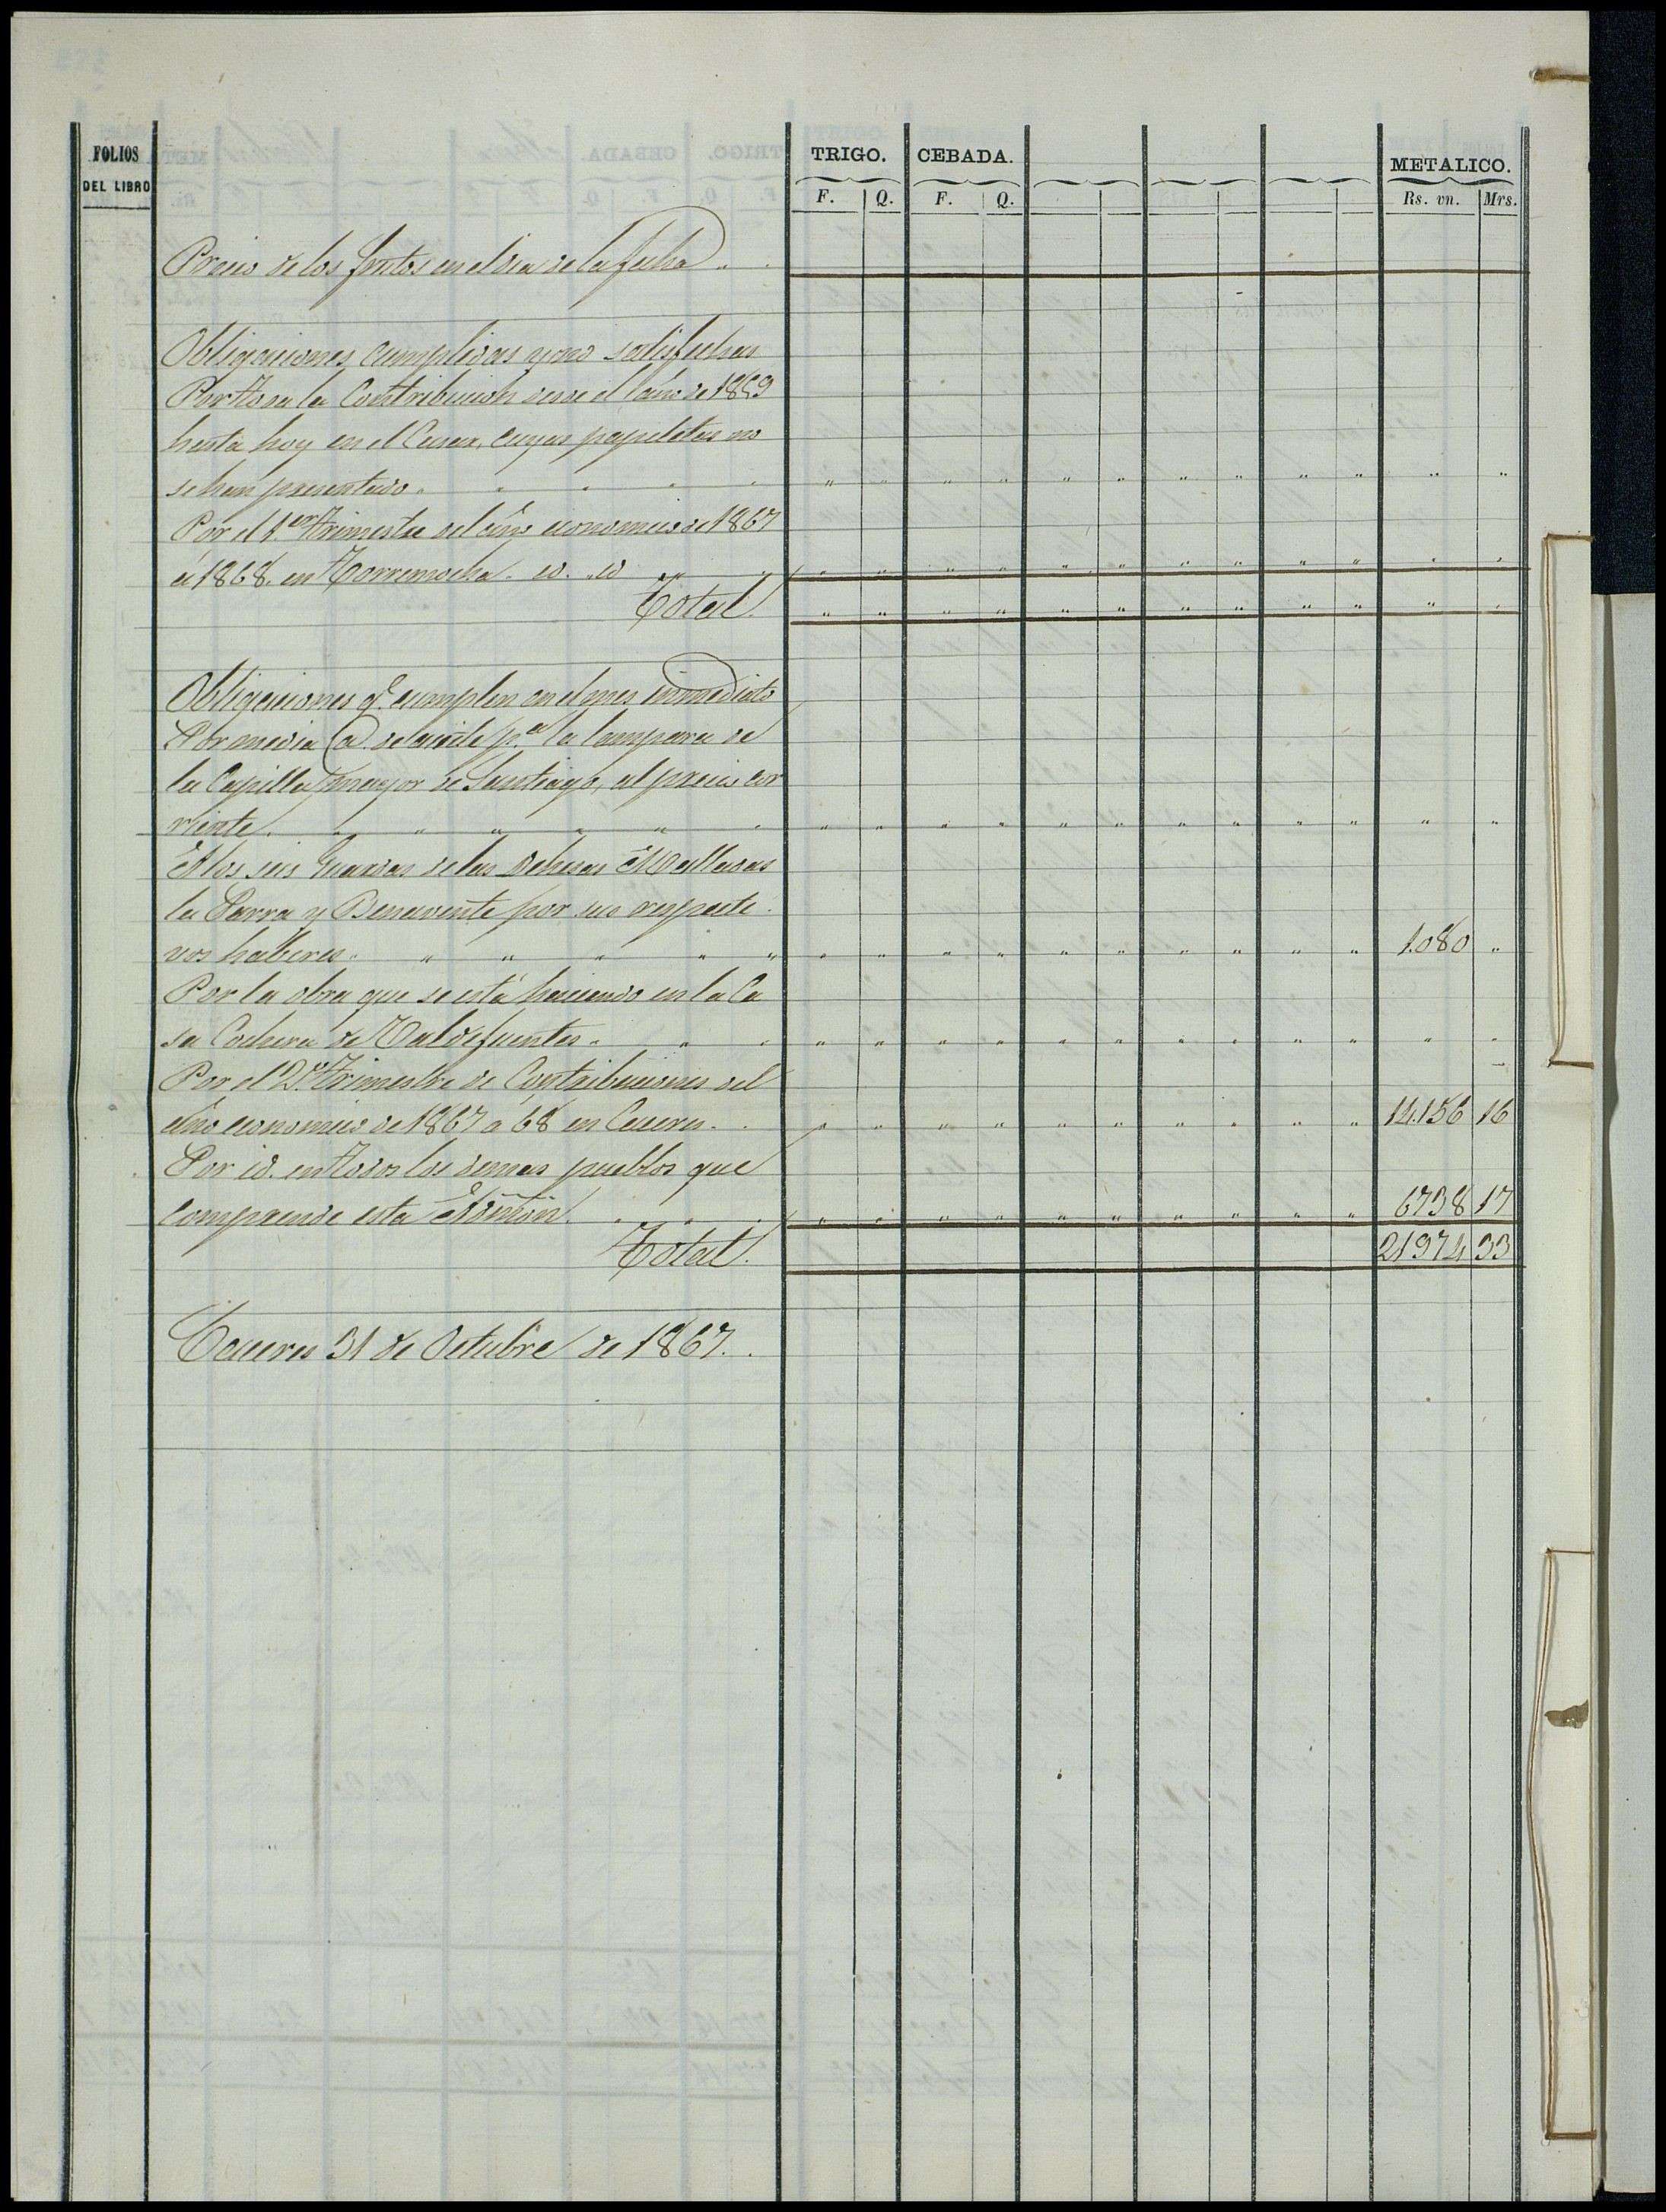 FOLIOS
DEL LIBRO
TRIGO. CEBADA. METALICO.
F. Q. F. Q. Rs. vn. Mrs.
Precio de los frutos en el dia de la fecha
Obligaciones cumplidas y no satisfechas
Por toda la Contribucion desde el año de 1859
hasta hoy en el Casar, cuyas papeletas no
se han presentado.
Por el 1.er trimestre del año economico de 1867
á 1868. en Torremocha. id. id
Total.
Obligaciones q.e cumplen en el mes inmediato
Por media @. de aceite p.a la lampara de
la Capilla mayor de Santiago, al precio cor
riente.
A los seis Guardas de las Dehesas Mogollonas
la Parra y Benavente por sus respecti-
vos haberes. 1.080 "
Por la obra que se está haciendo en la Ca
sa Cochera de Valdefuentes.
Por el 2.o trimestre de Contribuciones del
año economico de 1867 a 68 en Caceres. 14.156 16
Por id. en todos los demas pueblos que
comprende esta Admon. 6738 17
Total. 21974 33
Caceres 31 de Octubre de 1867.